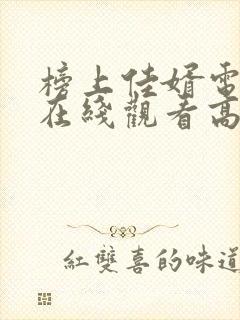 榜上佳婿電
在綫觀看高
紅雙喜的味道